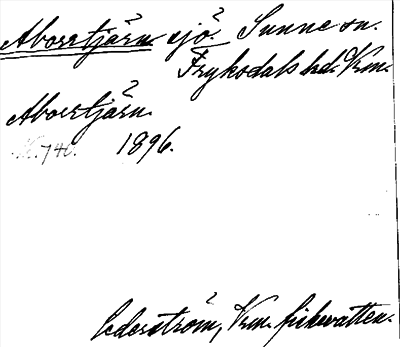 Aborrtjärn sjö. Sunne sn.
Fryksdals hd. Vrm.
Aborrtjärn.
740. 1896.
Cederström, Vrm. fiskevatten.